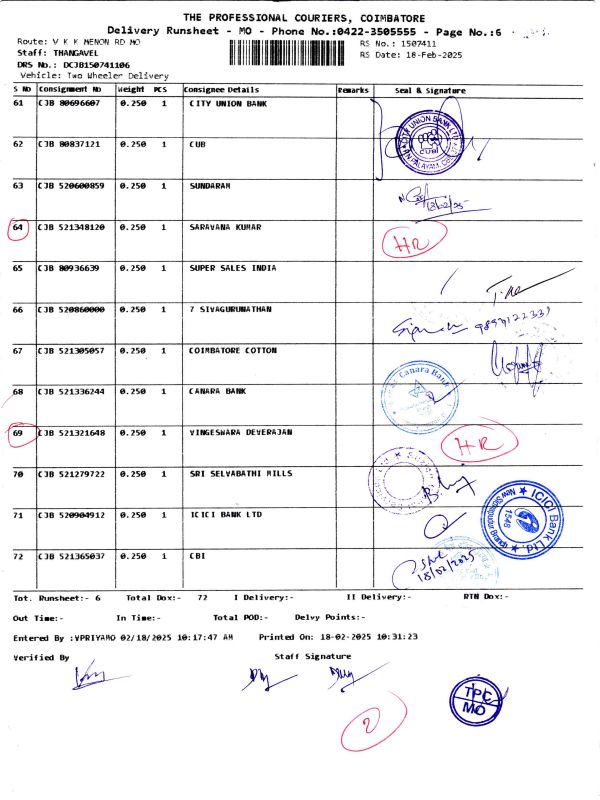 THE PROFESSIONAL COURIERS, COIMBATORE
Delivery Runsheet - MO - Phone No.:0422-3505555 - Page No.:6
Route: V K K MENON RD MO
RS No.: 1507411
Staff: THANGAVEL
RS Date: 18-Feb-2025
DRS No.: DCJB150741106
Vehicle: Two Wheeler Delivery
S No Consignment No Weight PCS Consignee Details Remarks Seal & Signature
61 CJB 80696607 0.250 1 CITY UNION BANK
62 CJB 80837121 0.250 1 CUB
CUBI
63 CJB 520600859 0.250 1 SUNDARAM
64 CJB 521348120 0.250 1 SARAVANA KUMAR HR
65 CJB 80936639 0.250 1 SUPER SALES INDIA
66 CJB 520860000 0.250 1 7 SIVAGURUNATHAN
67 CJB 521305057 0.250 1 COIMBATORE COTTON
68 CJB 521336244 0.250 1 CANARA BANK
Canara Bank
69 CJB 521321648 0.250 1 VINGESWARA DEVERAJAN HR
70 CJB 521279722 0.250 1 SRI SELVABATHI MILLS
71 CJB 520904912 0.250 1 ICICI BANK LTD
ICICI Bank Ltd.
1548
72 CJB 521365037 0.250 1 CBI
18/02/2025
Tot. Runsheet:- 6 Total Dox:- 72 I Delivery:- II Delivery:- RTN Dox:-
Out Time:- In Time:- Total POD:- Delvy Points:-
Entered By :VPRIYAMO 02/18/2025 10:17:47 AM Printed On: 18-02-2025 10:31:23
Verified By Staff Signature
TPC
MO
2